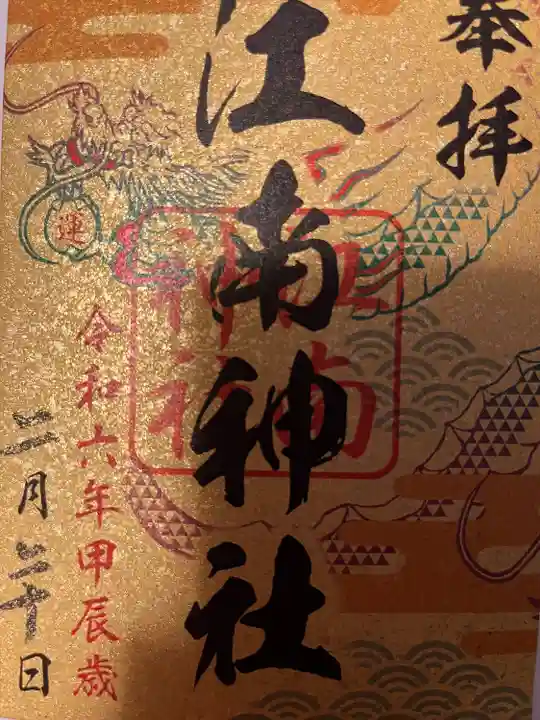 奉拝
江南神社
江南
神社
令和六年甲辰歳
二月二十日
運